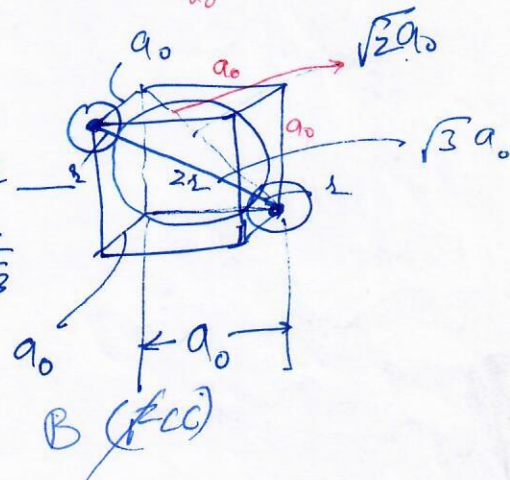 a₀
a₀
a₀
√2 a₀
a₀
√3 a₀
r
2r
r
a₀
a₀
B (FCC)